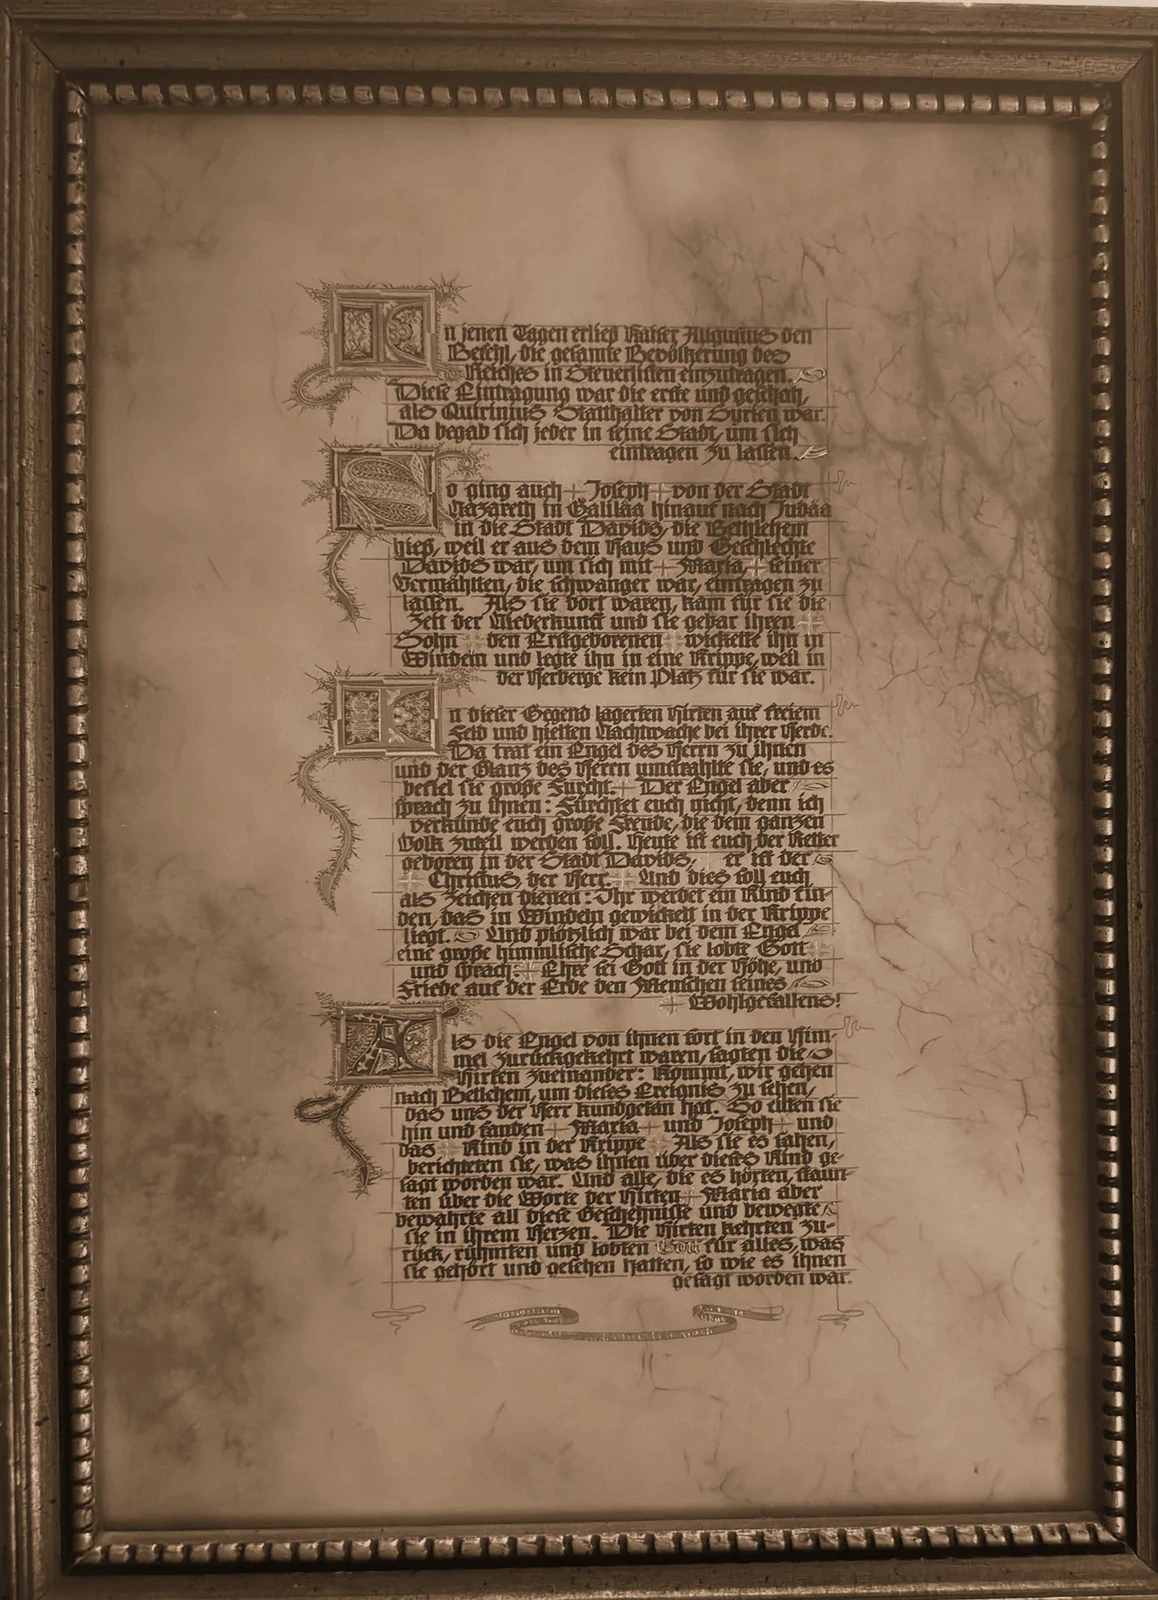 In jenen Tagen erließ Kaiser Augustus den
Befehl, die gesamte Bevölkerung des
Reiches in Steuerlisten einzutragen.
Diese Eintragung war die erste und geschah,
als Quirinius Statthalter von Syrien war.
Da begab sich jeder in seine Stadt, um sich
eintragen zu lassen.
So ging auch + Joseph + von der Stadt
Nazareth in Galiläa hinauf nach Judäa
in die Stadt Davids, die Bethlehem
hieß, weil er aus dem Haus und Geschlechte
Davids war, um sich mit + Maria, + seiner
Vermählten, die schwanger war, eintragen zu
lassen. Als sie dort waren, kam für sie die
Zeit der Niederkunft und sie gebar ihren +
Sohn + den Erstgeborenen + wickelte ihn in
Windeln und legte ihn in eine Krippe, weil in
der Herberge kein Platz für sie war.
In dieser Gegend lagerten Hirten auf freiem
Feld und hielten Nachtwache bei ihrer Herde.
Da trat ein Engel des Herrn zu ihnen
und der Glanz des Herrn umstrahlte sie, und es
befiel sie große Furcht. + Der Engel aber
sprach zu ihnen: Fürchtet euch nicht, denn ich
verkünde euch große Freude, die dem ganzen
Volk zuteil werden soll. Heute ist euch der Retter
geboren in der Stadt Davids, + er ist der
+ Christus, der Herr. + Und dies soll euch
als Zeichen dienen: Ihr werdet ein Kind fin-
den, das in Windeln gewickelt in der Krippe
liegt. Und plötzlich war bei dem Engel
eine große himmlische Schar, sie lobte Gott +
und sprach: + Ehre sei Gott in der Höhe, und
Friede auf der Erde den Menschen seines
+ Wohlgefallens!
Als die Engel von ihnen fort in den Him-
mel zurückgekehrt waren, sagten die
Hirten zueinander: Kommt, wir gehen
nach Betlehem, um dieses Ereignis zu sehen,
das uns der Herr kundgetan hat. So eilten sie
hin und fanden + Maria + und Joseph + und
das + Kind in der Krippe + Als sie es sahen,
berichteten sie, was ihnen über dieses Kind ge-
sagt worden war. Und alle, die es hörten, staun-
ten über die Worte der Hirten + Maria aber
bewahrte all diese Geschehnisse und bewegte
sie in ihrem Herzen. Die Hirten kehrten zu-
rück, rühmten und lobten Gott für alles, was
sie gehört und gesehen hatten, so wie es ihnen
gesagt worden war.